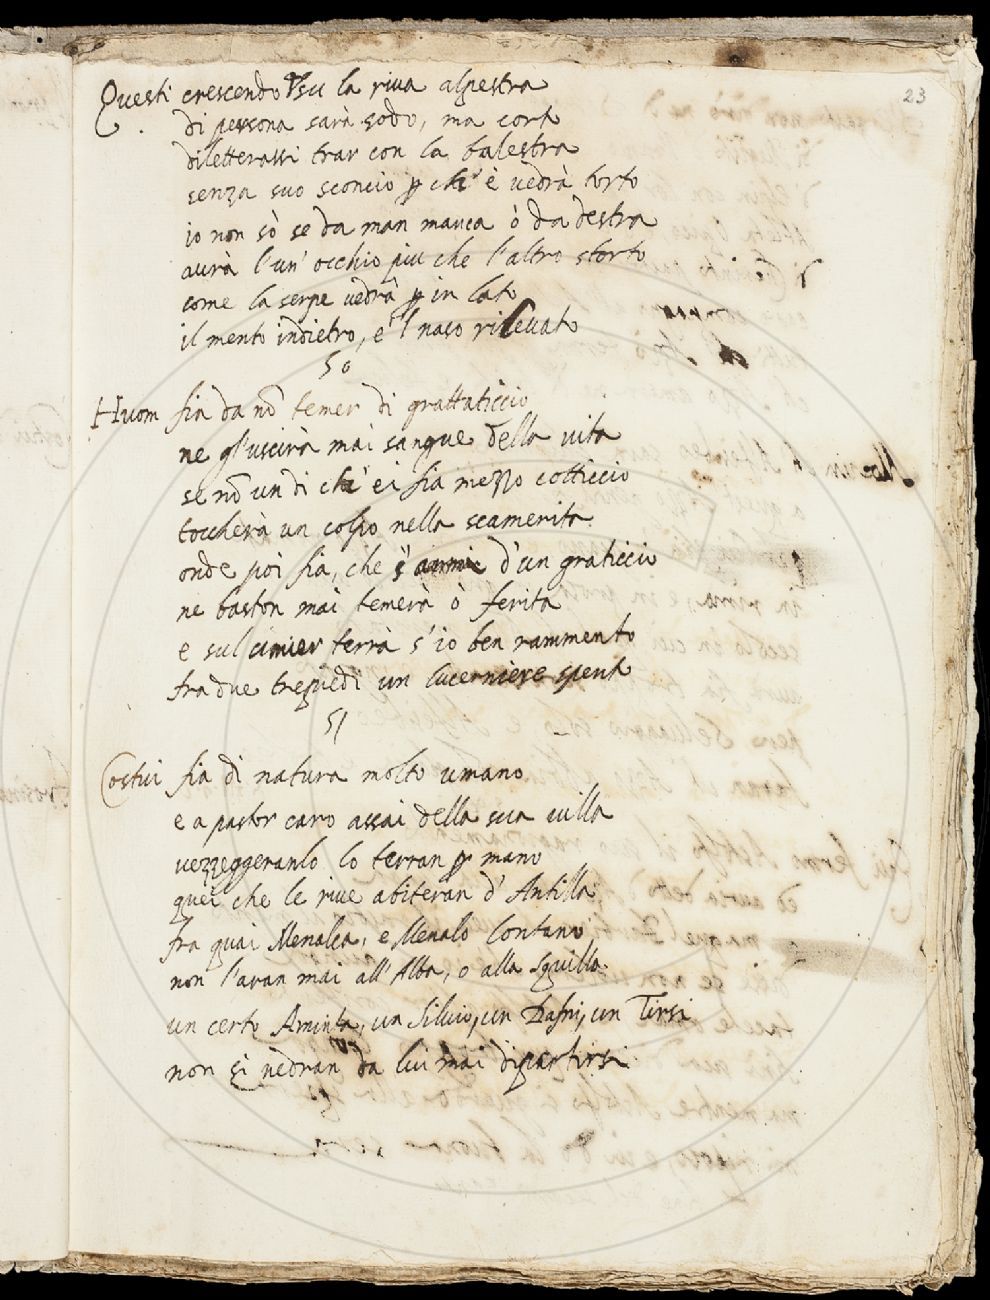 23
Questi crescendo su la riva alpestra
di persona sarà sodo, ma corto
diletterassi trar con la balestra
senza suo sconcio ꝑ chi è vedrà torto
io non sò se da man manca ò da destra
avrà l'un' occhio piu che l'altro storto
come la serpe vedrà ꝑ in lato
il mento indietro, e 'l naso rilevato
50
Huom fia da nō temer di grattaticcio
ne gl'uscirà mai sangue della vita
se nō un di ch' ei fia mezzo cotticcio
toccherà un colpo nella scamerita
onde poi fia, che s' armi d'un graticcio
ne baston mai temerà ò ferita
e sul cimier terrà s'io ben rammento
fra due treppiedi un lucerniere spento
51
Costui fia di natura molto umano
e a pastor caro assai della sua villa
vezzeggeranlo lo terran ꝑ mano
quei che le rive abiteran d' Antilla
fra quai Menalca, e Menalo lontano
non l'avan mai all' Alba, o alla squilla
un certo Aminta, un Silvio, un Dafni, un Tirsi
non si vedran da lui mai dipartirsi